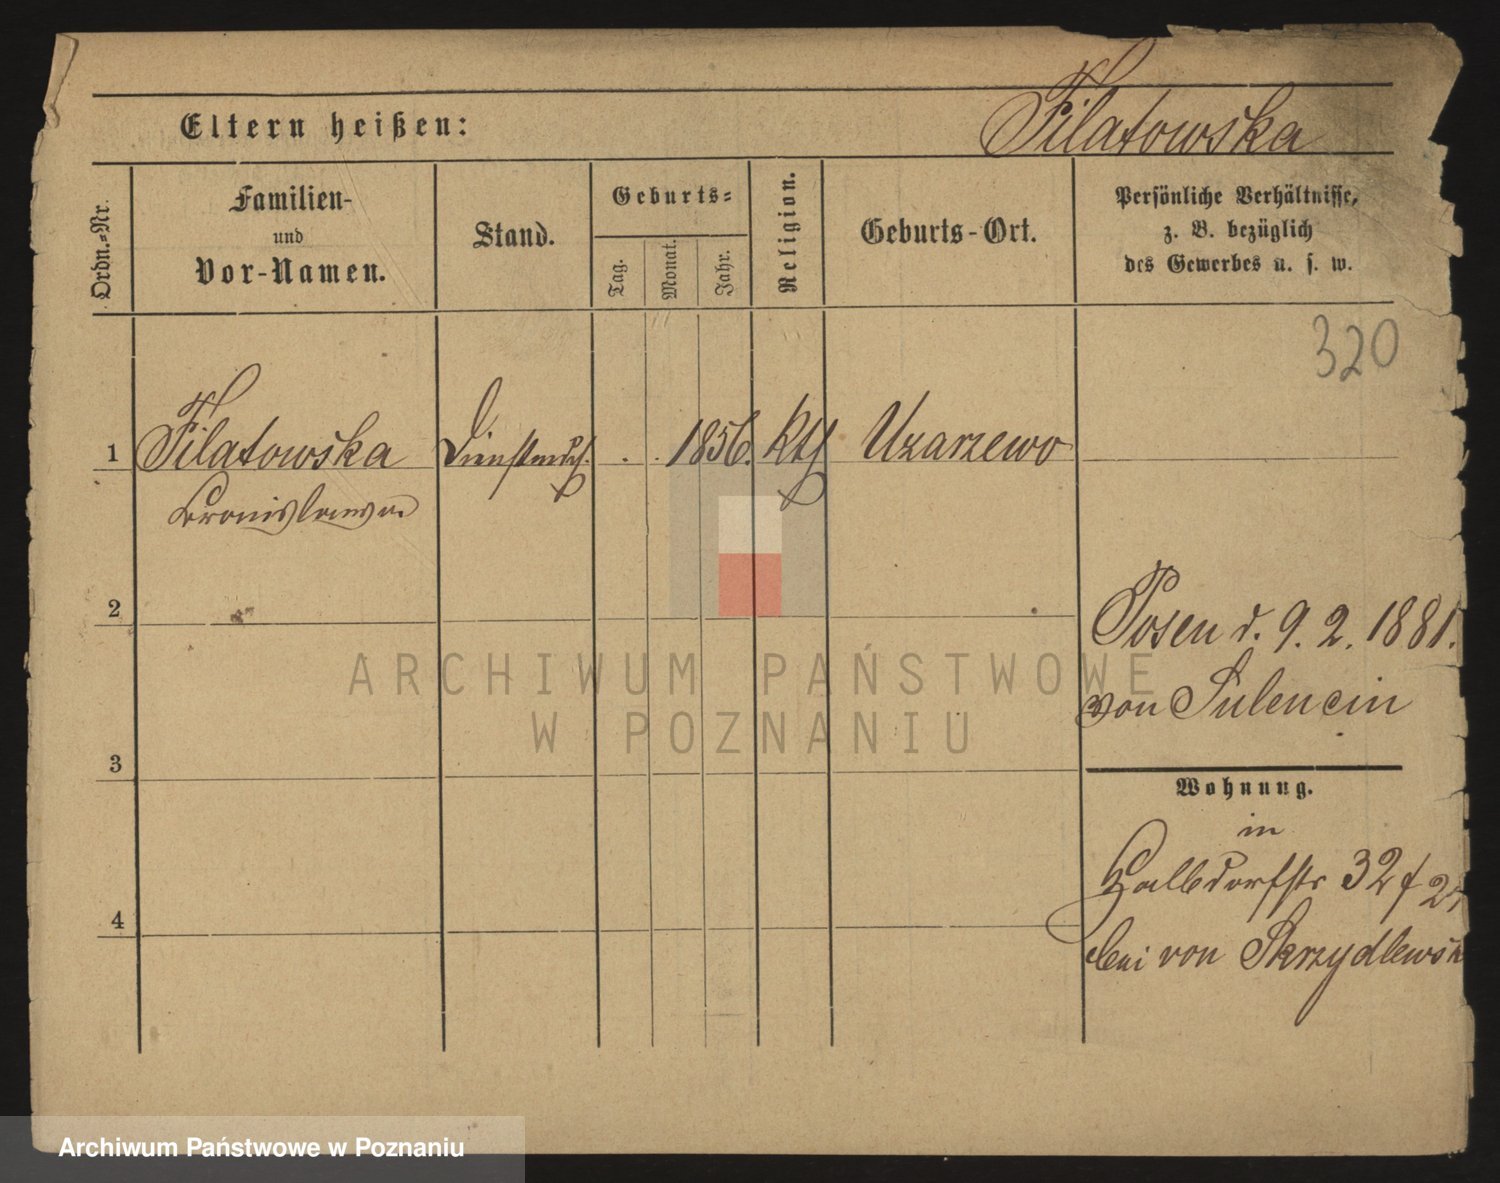 Filatowska
Eltern heißen:
Ordn.-Nr.
Familien-
und
Vor-Namen.
Stand.
Geburts-
Tag.
Monat.
Jahr.
Religion.
Geburts-Ort.
Persönliche Verhältnisse,
z. B. bezüglich
des Gewerbes u. s. w.
320
1 Filatowska . . 1856. kth Uzarzewo
Bronislawa
2
Posen d. 9. 2. 1881.
von Sulencin
3
Wohnung.
in
Halbdorfstr 32
4
bei von Skrzydlewsk
ARCHIWUM PAŃSTWOWE
W POZNANIU
Archiwum Państwowe w Poznaniu